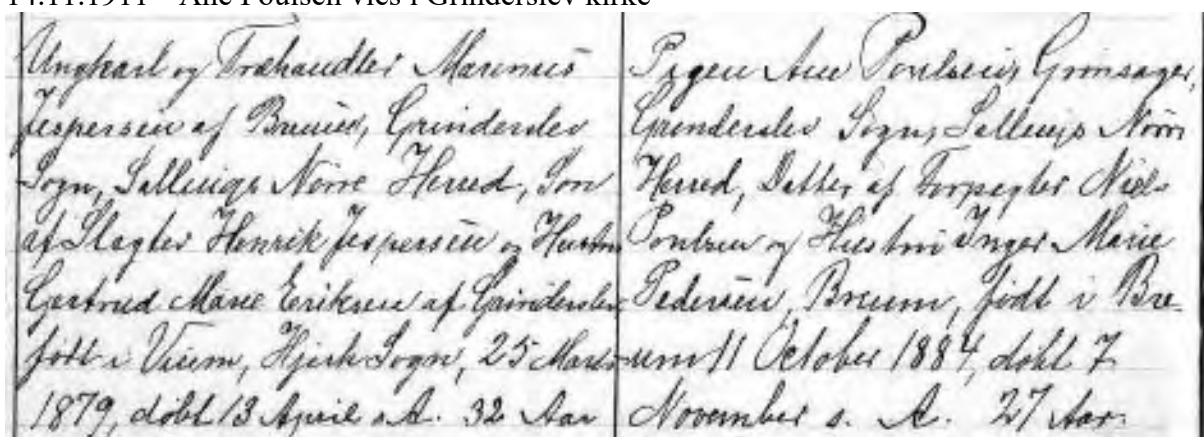 14.11.1911 – Ane Poulsen vies i Grinderslev kirke
Ungkarl og Træhandler Marinus
Jespersen af Breum, Grinderslev
Sogn, Sallings Nørre Herred, Søn
af Slagter Henrik Jespersen og Hustru
Gertrud Marie Eriksen af Grinderslev
født i Vium, Hjerk Sogn, 25 Marts
1879, døbt 13 April s. A. 32 Aar
Pigen Ane Poulsen, Grønsager,
Grinderslev Sogn, Sallings Nørre
Herred, Datter af Niels
Poulsen og Hustru Inger Marie
Pedersen, Breum, født i Bre-
um 11 October 1884, døbt 7
November s. A. 27 Aar.